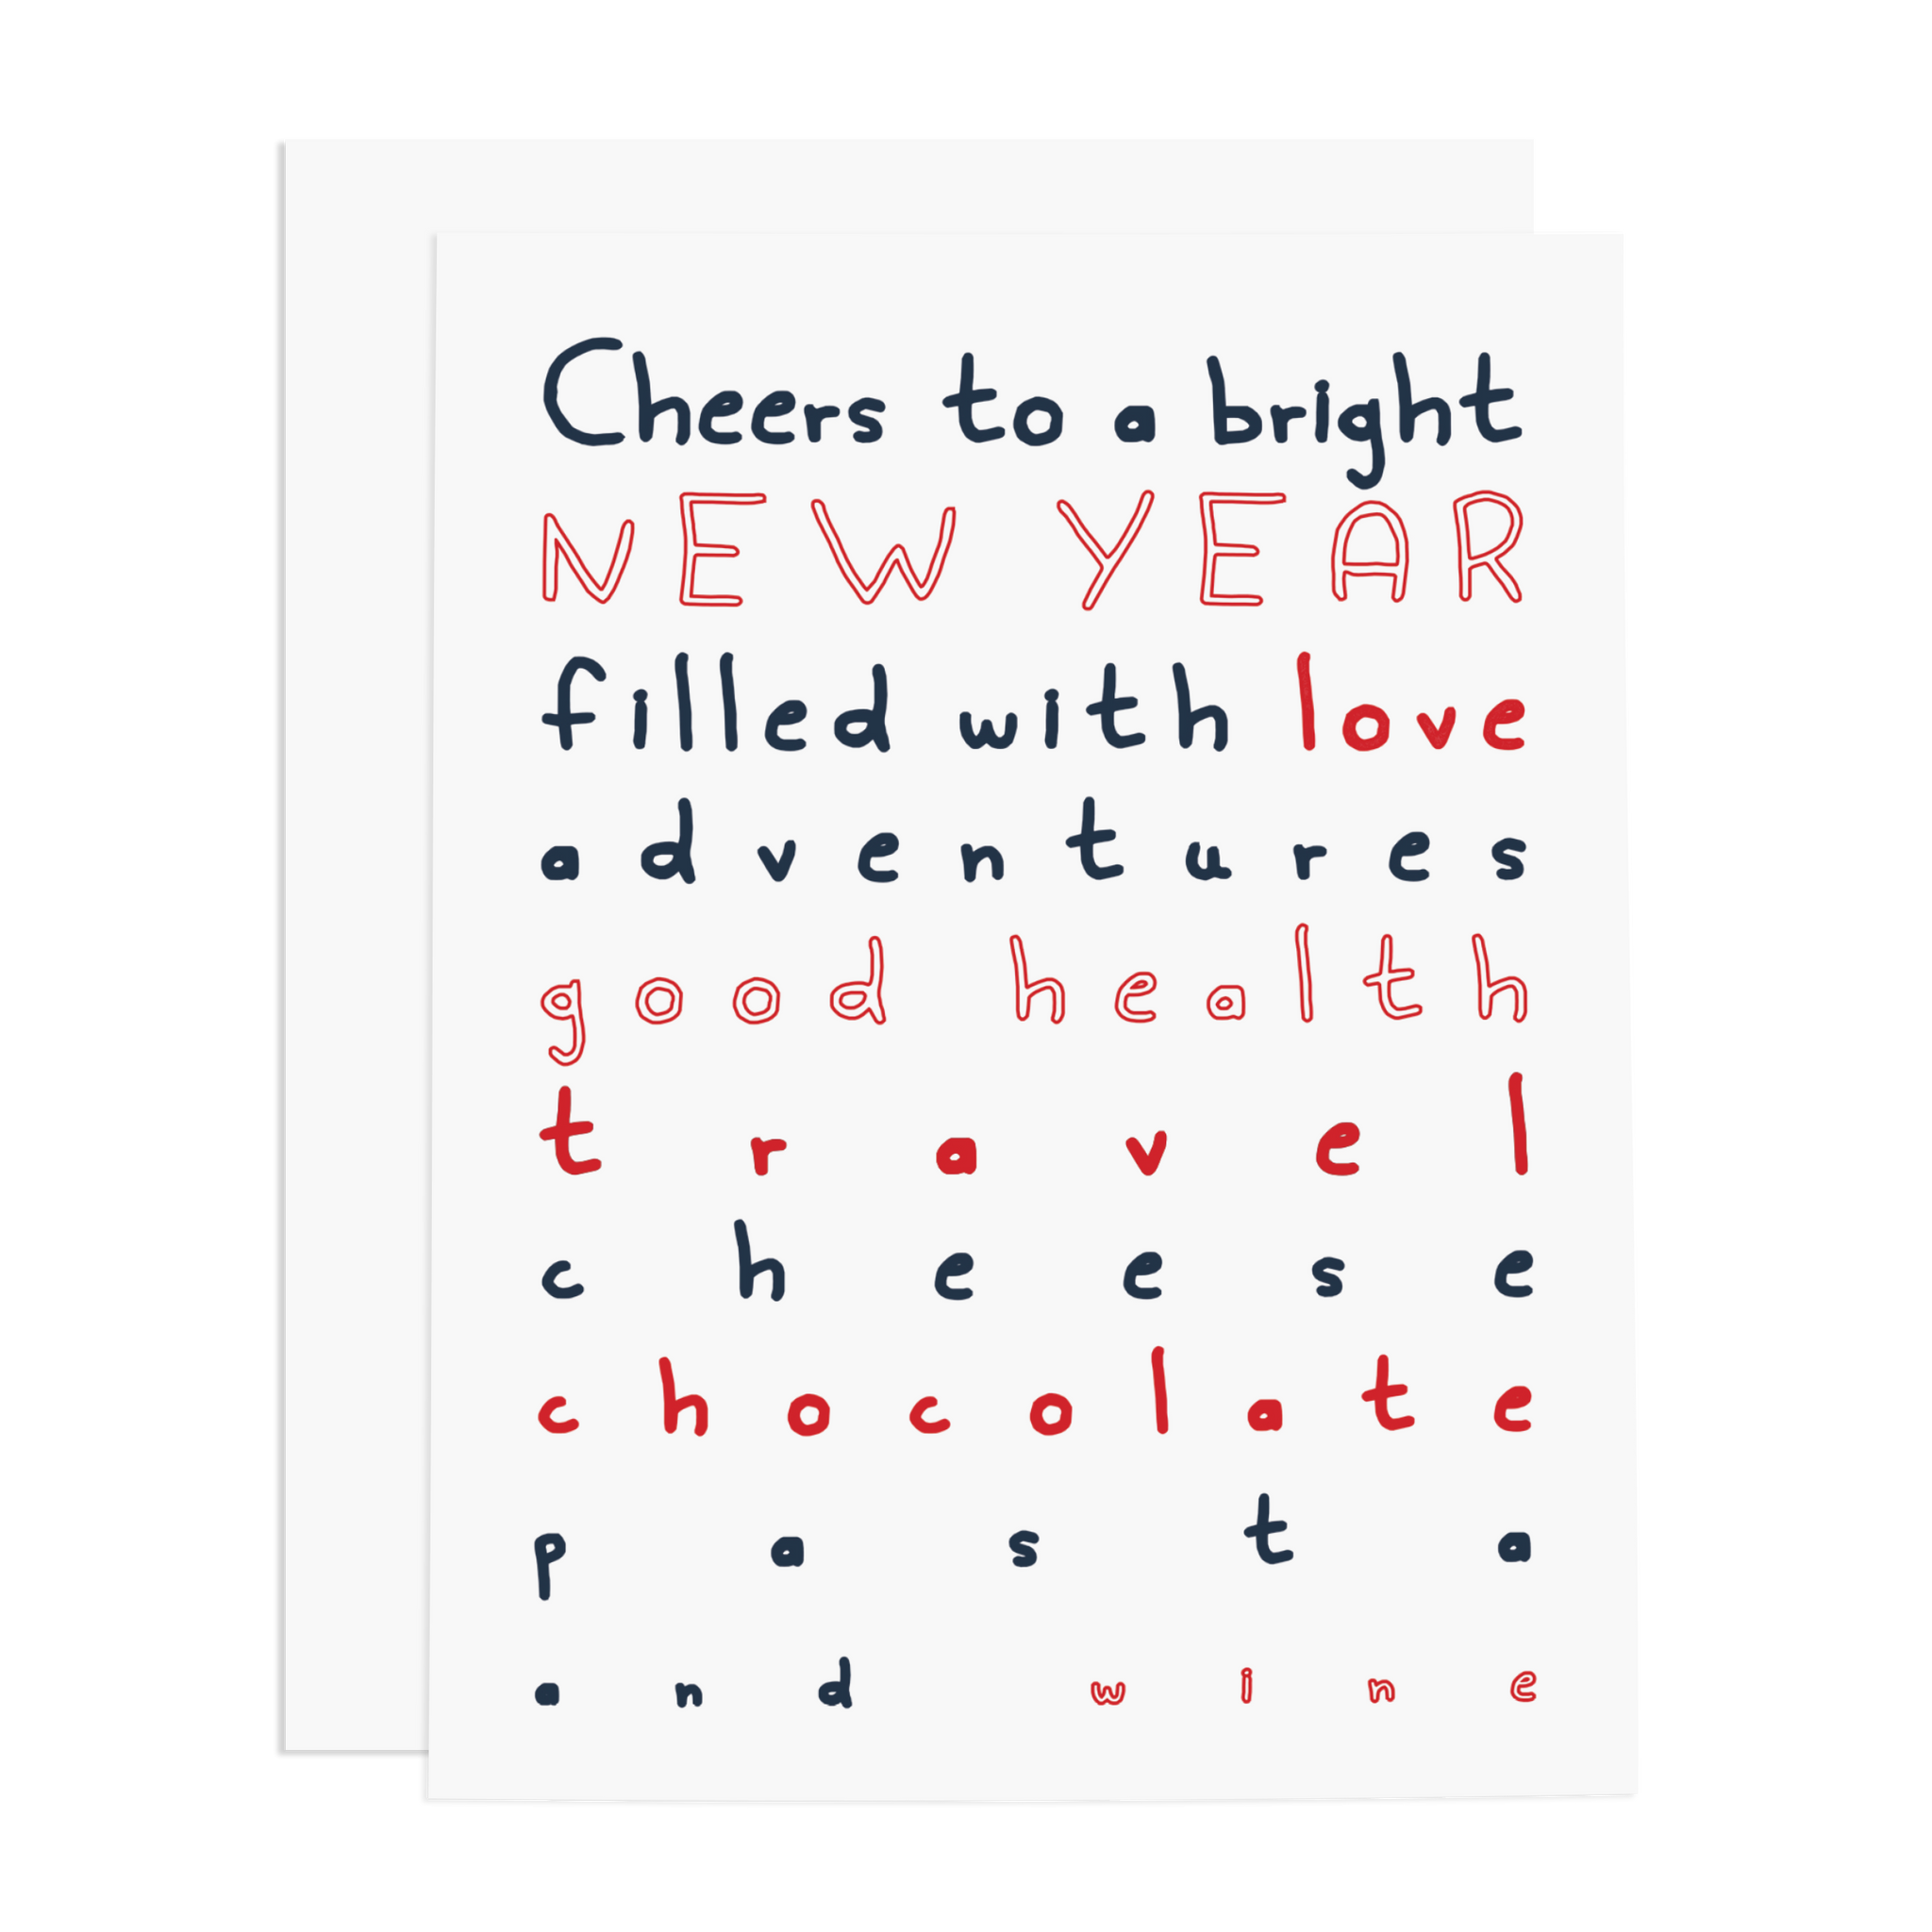 Cheers to a bright
NEW YEAR
filled with love
adventures
good health
travel
cheese
chocolate
pasta
and wine